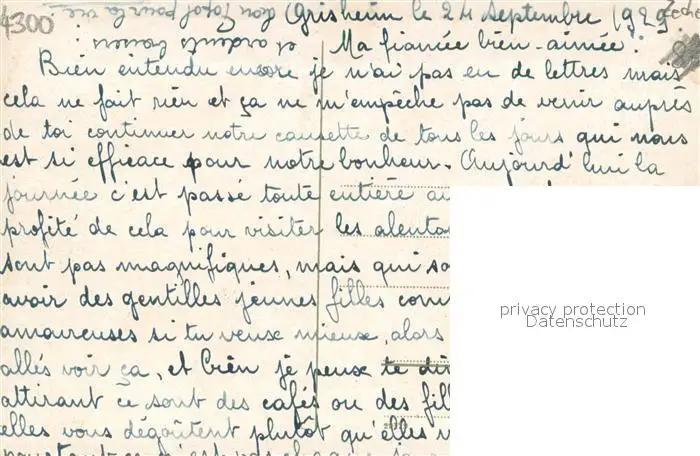 4300
Grisheim le 24 septembre 1929
ton Popol pour la vie
et ardents baisers
Ma fiancée bien-aimée!
Bien entendu encore je n'ai pas eu de lettres mais
cela ne fait rien et ça ne m'empêche pas de venir auprès
de toi continuer notre causette de tous les jours qui nous
est si efficace pour notre bonheur. Aujourd'hui la
journée c'est passé toute entière au
profité de cela pour visiter les alento
sont pas magnifiques, mais qui so
avoir des gentilles jeunes filles com
amoureuses si tu veux mieux, alors
allés voir ça, et bien je peux te di
attirant ce sont des cafés ou des fill
elles vous dégoûtent plutôt qu'elles v
privacy protection
Datenschutz